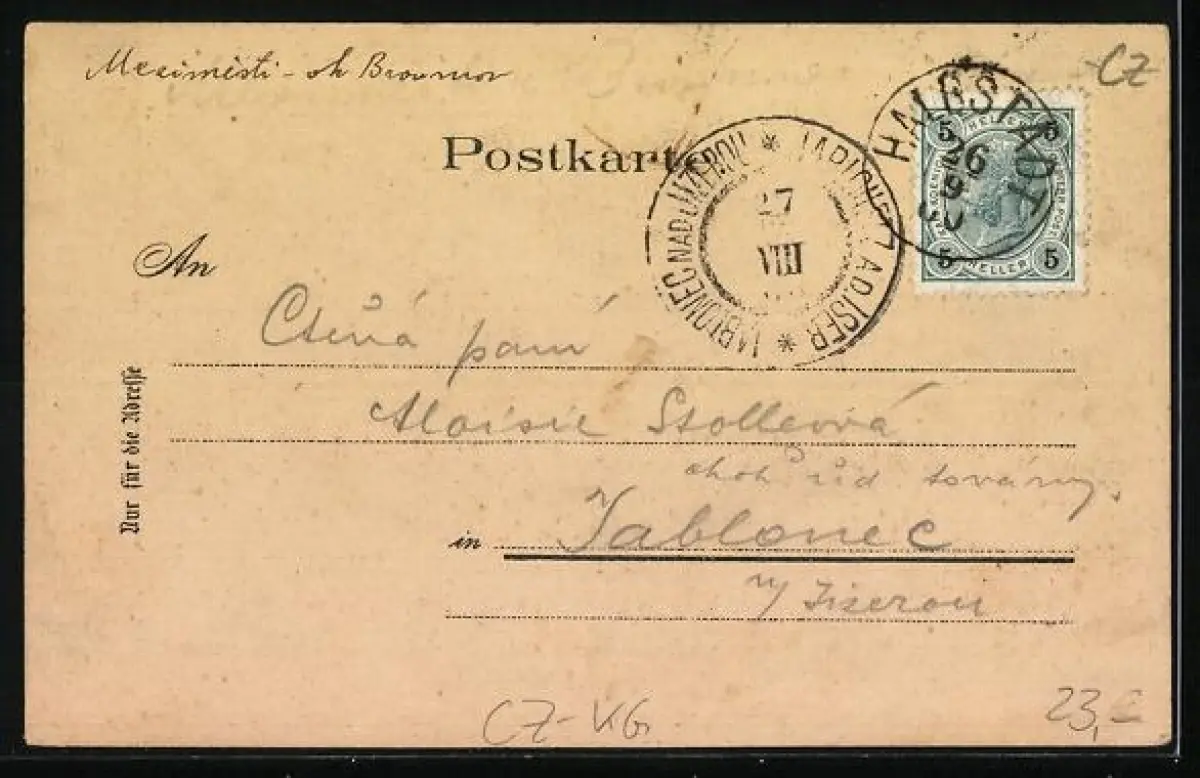 Mezimesti - ok Broumov
CZ
Postkarte
HALBSTADT
26
9
00
5 HELLER 5
5 HELLER 5
JABLONEC NAD JIZEROU * JABLONETZ A. D. ISER *
27
VIII
An
Ctěná paní
Aloisie Stollcová
Nur für die Adresse
továrny.
in Jablonec
n/ Jizerou
CZ-KG.
23,-